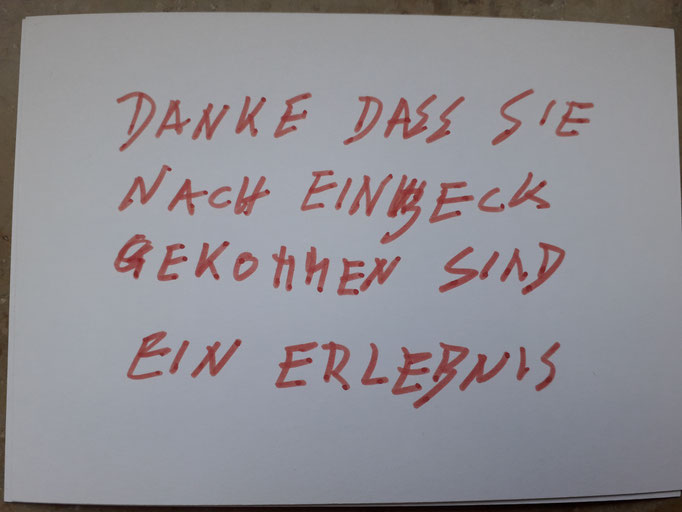 DANKE DASS SIE
NACH EINBECK
GEKOMMEN SIND
EIN ERLEBNIS